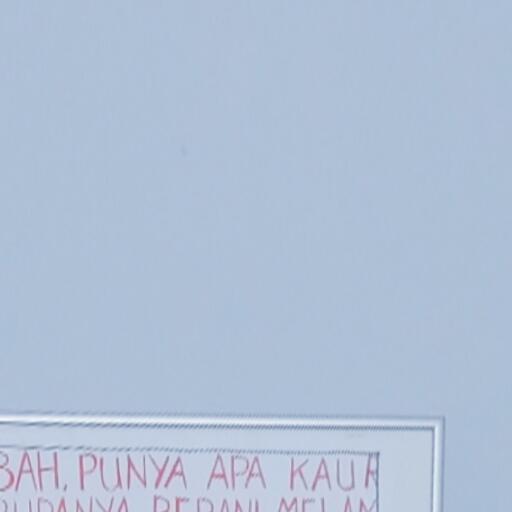 BAH, PUNYA APA KAU
RUPANYA BERANI MELAM